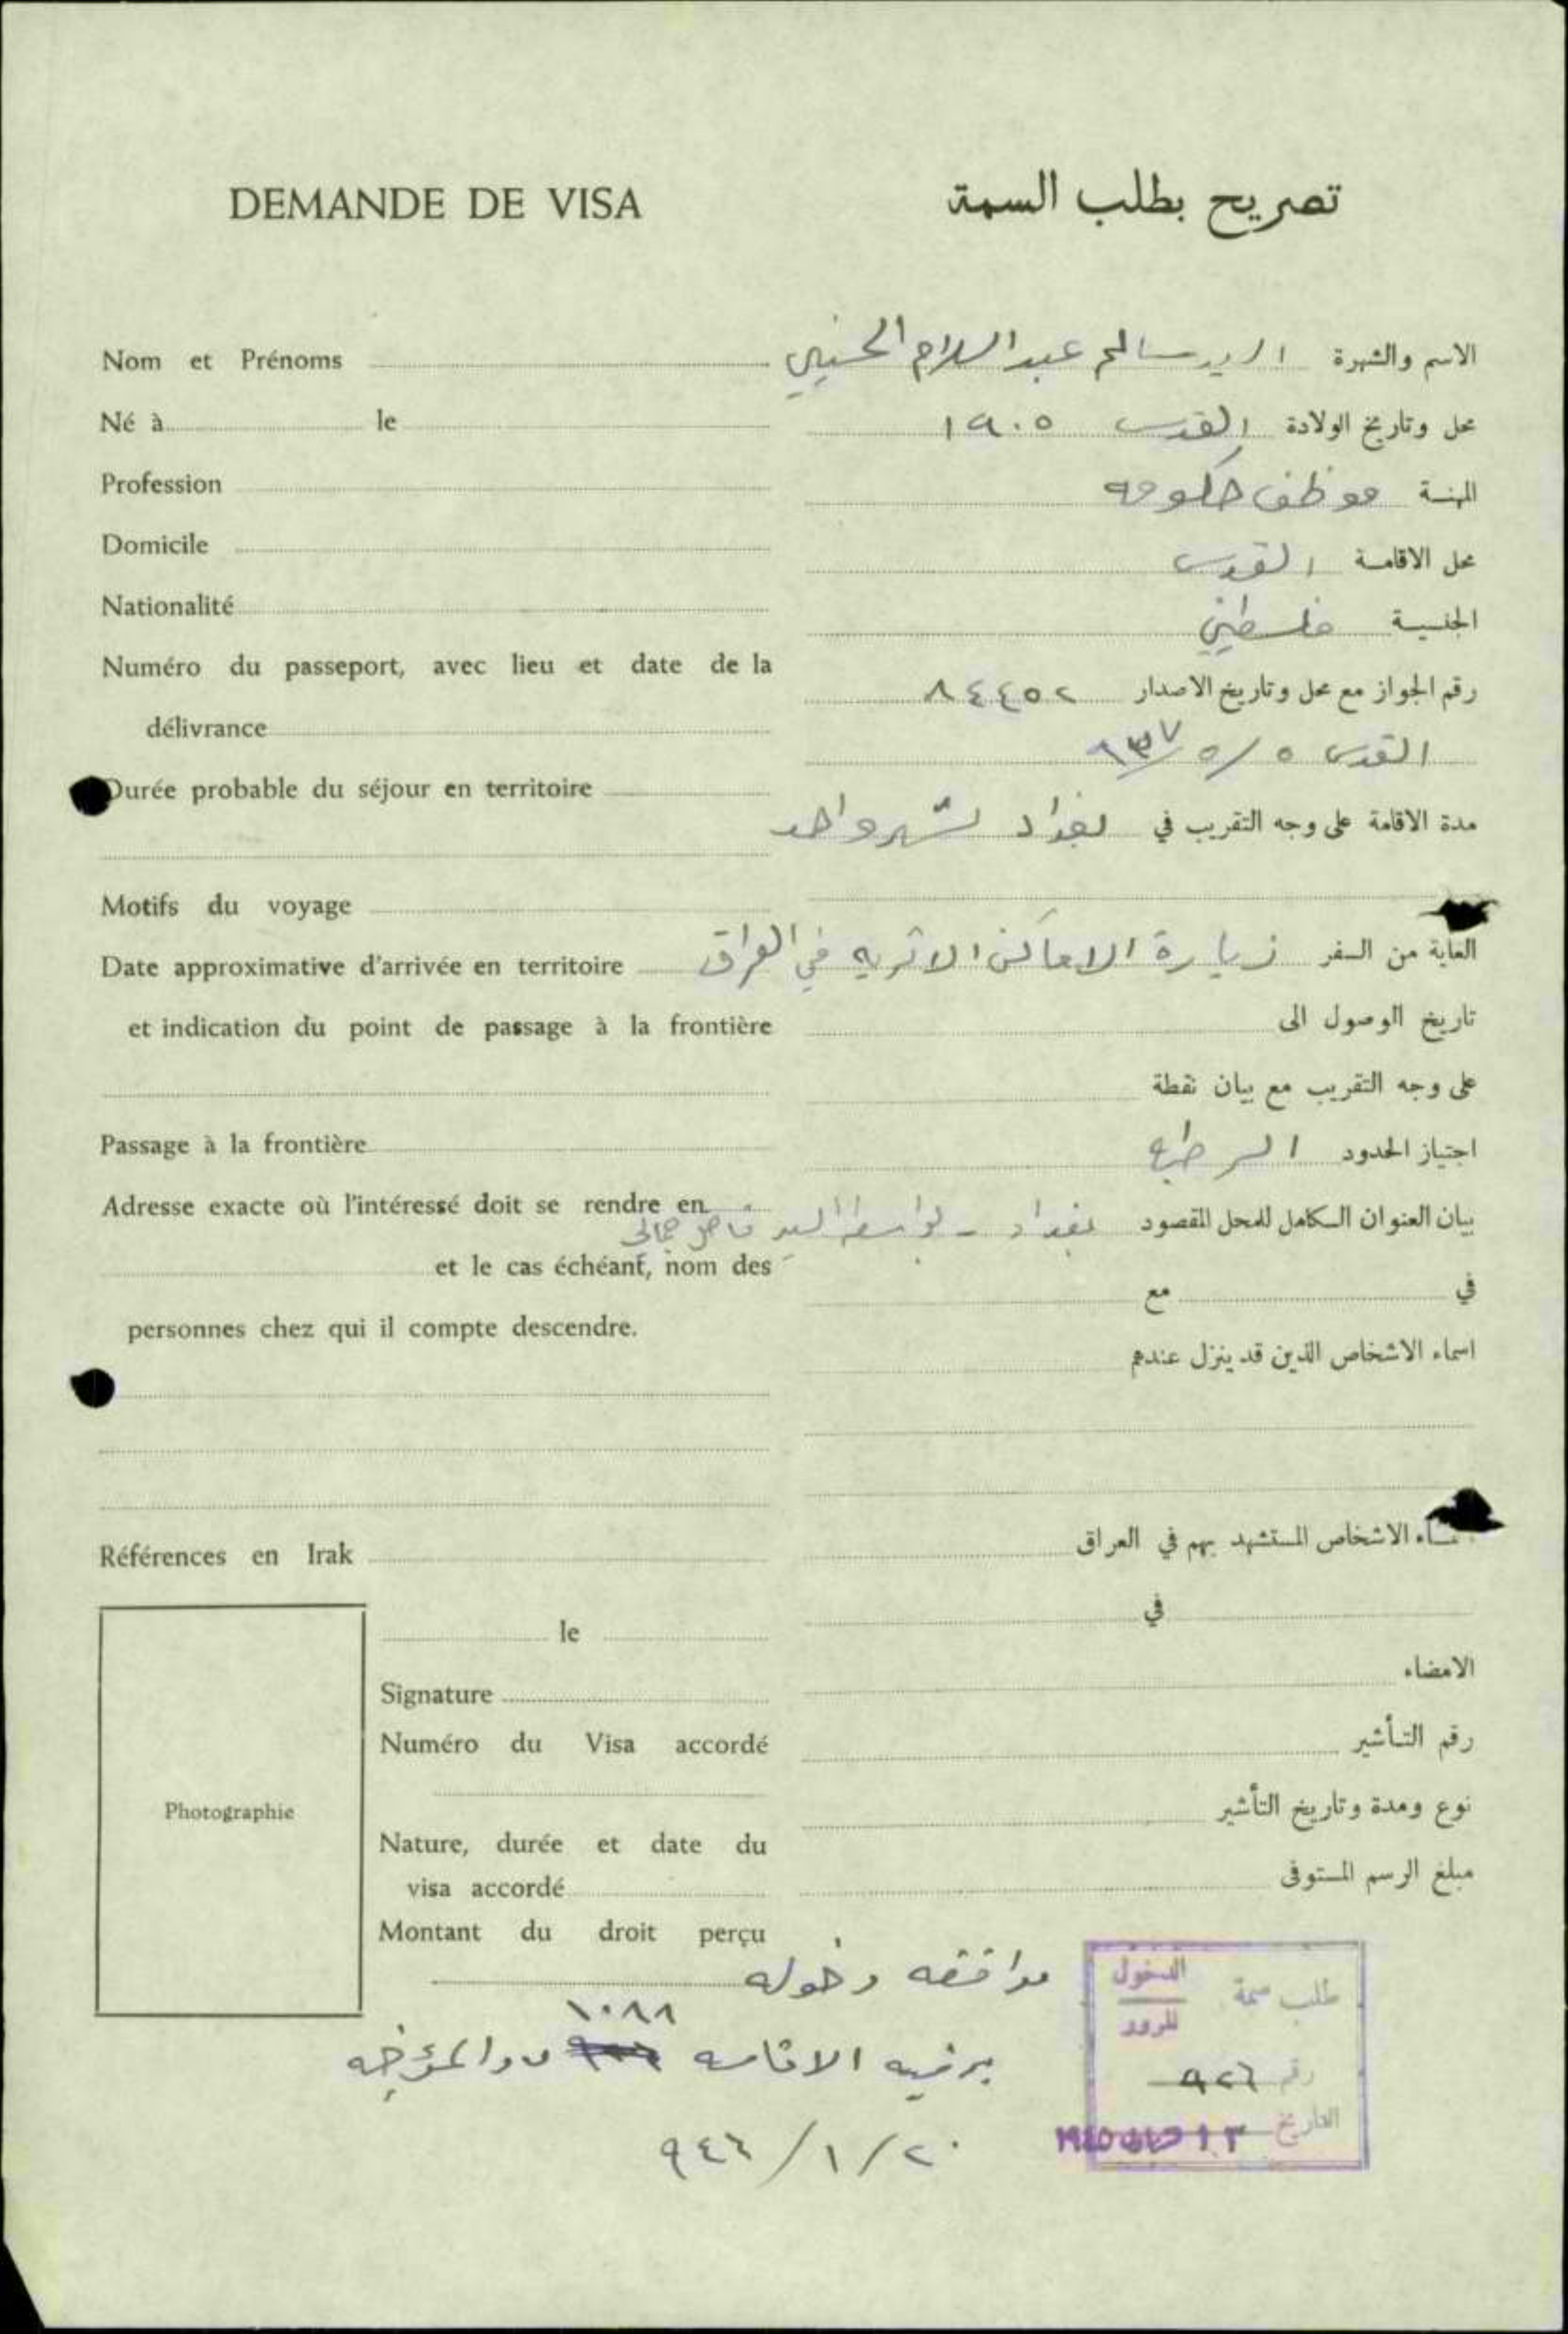 DEMANDE DE VISA
تصريح بطلب السمة
Nom et Prénoms
الاسم والشهرة السيد سالم عبد السلام الحسيني
Né à le
محل وتاريخ الولادة القدس ١٩٠٥
Profession
المهنة موظف حكومه
Domicile
محل الاقامة القدس
Nationalité
الجنسية فلسطيني
Numéro du passeport, avec lieu et date de la
délivrance
رقم الجواز مع محل وتاريخ الاصدار ٨٤٤٥٢
القدس ٥/٥/٩٣٧
Durée probable du séjour en territoire
مدة الاقامة على وجه التقريب في بغداد لشهر واحد
Motifs du voyage
الغاية من السفر زيارة الاماكن الاثريه في العراق
Date approximative d'arrivée en territoire
et indication du point de passage à la frontière
تاريخ الوصول الى
على وجه التقريب مع بيان نقطة
Passage à la frontière
اجتياز الحدود الرطبه
Adresse exacte où l'intéressé doit se rendre en
et le cas échéant, nom des
personnes chez qui il compte descendre.
بيان العنوان الكامل للمحل المقصود بغداد - بواسطة السيد فاضل جمالي
في مع
اسماء الاشخاص الذين قد ينزل عندهم
Références en Irak
الاشخاص المستشهد بهم في العراق
في
le
الامضاء
Signature
رقم التأشير
Numéro du Visa accordé
نوع ومدة وتاريخ التأشير
Photographie
Nature, durée et date du
visa accordé
مبلغ الرسم المستوفى
Montant du droit perçu
موافقه دخوله
١٠٨٨
برقيه الاقامه والمؤرخه
٢٠/١/٩٤٦
طلب سمة الدخول
للمرور
رقم ٩٢٦
التاريخ ١٣ ١٩٤٥